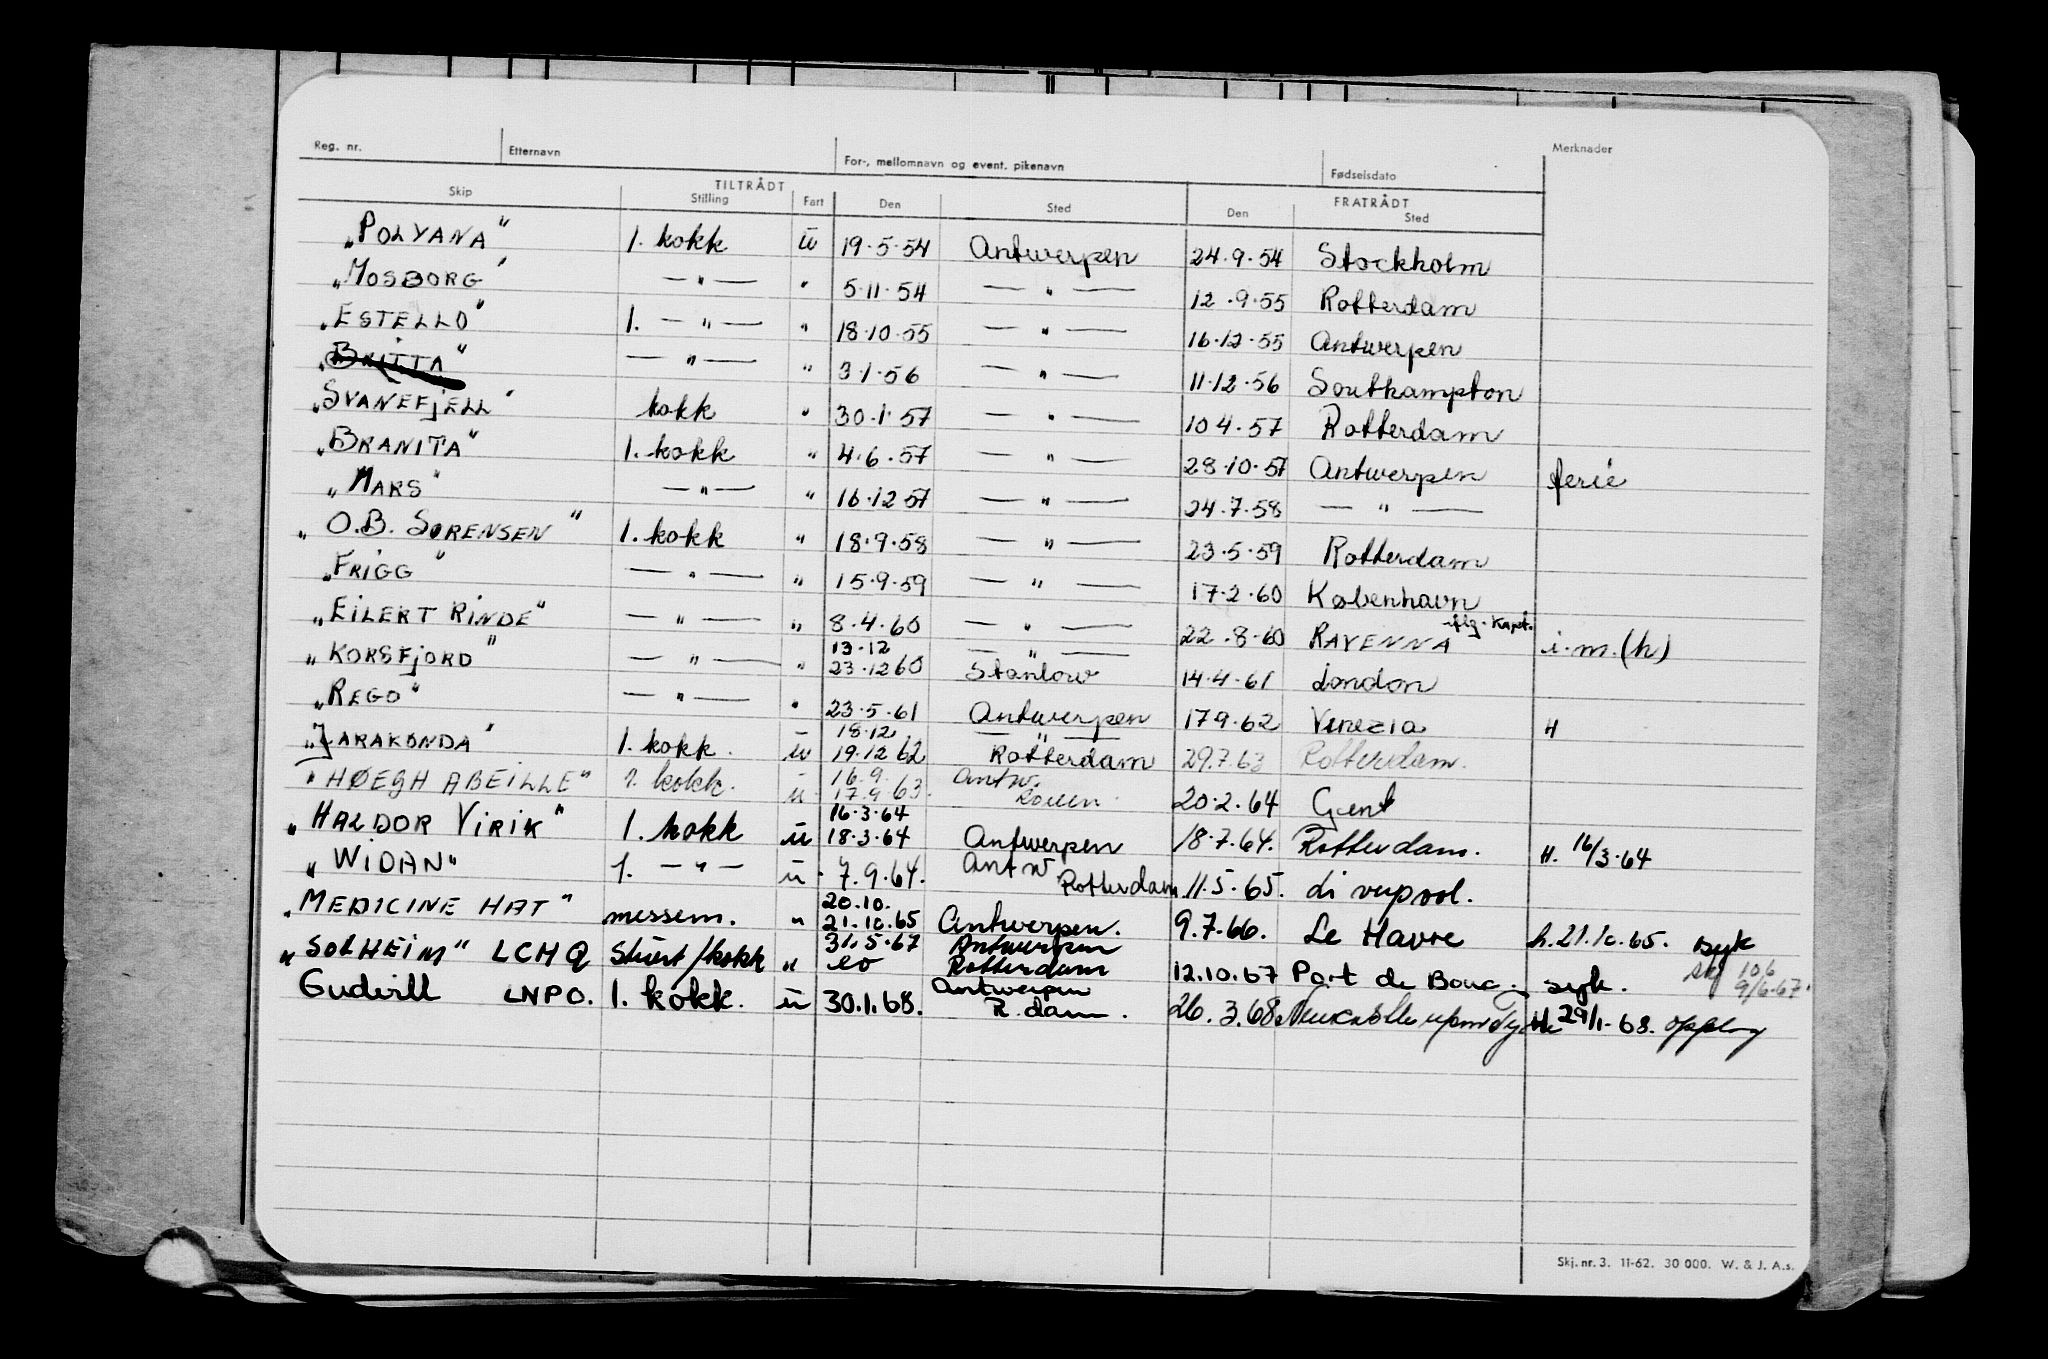 Reg. nr. Etternavn For-, mellomnavn og event. pikenavn Fødselsdato Merknader
TILTRÅDT FRATRÅDT
Skip Stilling Fart Den Sted Den Sted
„POLYANA" 1. kokk u 19.5.54 Antwerpen 24.9.54 Stockholm
„MOSBORG" — " — " 5.11.54 — " — 12.9.55 Rotterdam
„ESTELLO" 1. — " — " 18.10.55 — " — 16.12.55 Antwerpen
„BRITTA" — " — " 3.1.56 — " — 11.12.56 Southampton
„SVANEFJELL" kokk " 30.1.57 — " — 10 4.57 Rotterdam
„BRANITA" 1. kokk " 4.6.57 — " — 28.10.57 Antwerpen ferie
„MARS" — " — " 16.12 57 — " — 24.7.58 — " —
„O.B. SØRENSEN" 1. kokk " 18.9.58 — " — 23.5.59 Rotterdam
„FRIGG" — " — " 15.9.59 — " — 17.2.60 København
„EILERT RINDE" — " — " 8.4.60 — " — 22.8.60 RAVENNA iflg. Kapt. i.m.(h)
13.12 — " —
„KORSFJORD" — " — " 23.12 60 Stanlow 14.4.61 London
„REGO" — " — " 23.5.61 Antwerpen 17 9.62 Venezia H
18.12 — " —
„JARAKONDA" 1. kokk. u 19.12 62 Rotterdam 29.7.63 Rotterdam.
16.9. Antw.
"HØEGH ABEILLE" 1. kokk. u 17.9.63. Rouen. 20.2.64 Gent
16.3.64
„HALDOR VIRIK" 1. kokk u 18.3.64 Antwerpen 18.7.64. Rotterdam. H. 16/3.64
„WIDAN" 1. — " — u. 7.9.64. Antw. Rotterdam 11.5.65. Liverpool.
20.10.
„MEDICINE HAT" messem. " 21.10.65 Antwerpen. 9.7.66. Le Havre h. 21.10.65. syk
31.5.67 Antwerpen
„SOLHEIM" LCHQ Stuert/kokk " Rotterdam 12.10.67 Port de Bouc. syk. 10.6 9/6.67.
Antwerpen
Gudvill LNPO. 1. kokk. u 30.1.68. R.dam. 26.3.68 Newcastle upon Tyne H 29/1-68. oppdrag
Skj. nr. 3. 11-62. 30 000. W. & J. A.s.